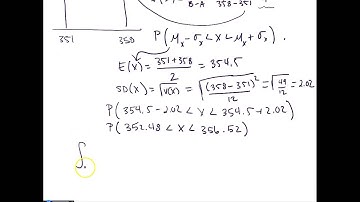 B-A 358-351
351 358
P(μₓ-σₓ<X<μₓ+σₓ).
E(X)=351+358/2=354.5
SD(X)=√V(X)=√(358-351)²/12=√49/12=2.02
P(354.5-2.02<X<354.5+2.02)
P(352.48<X<356.52)
∫